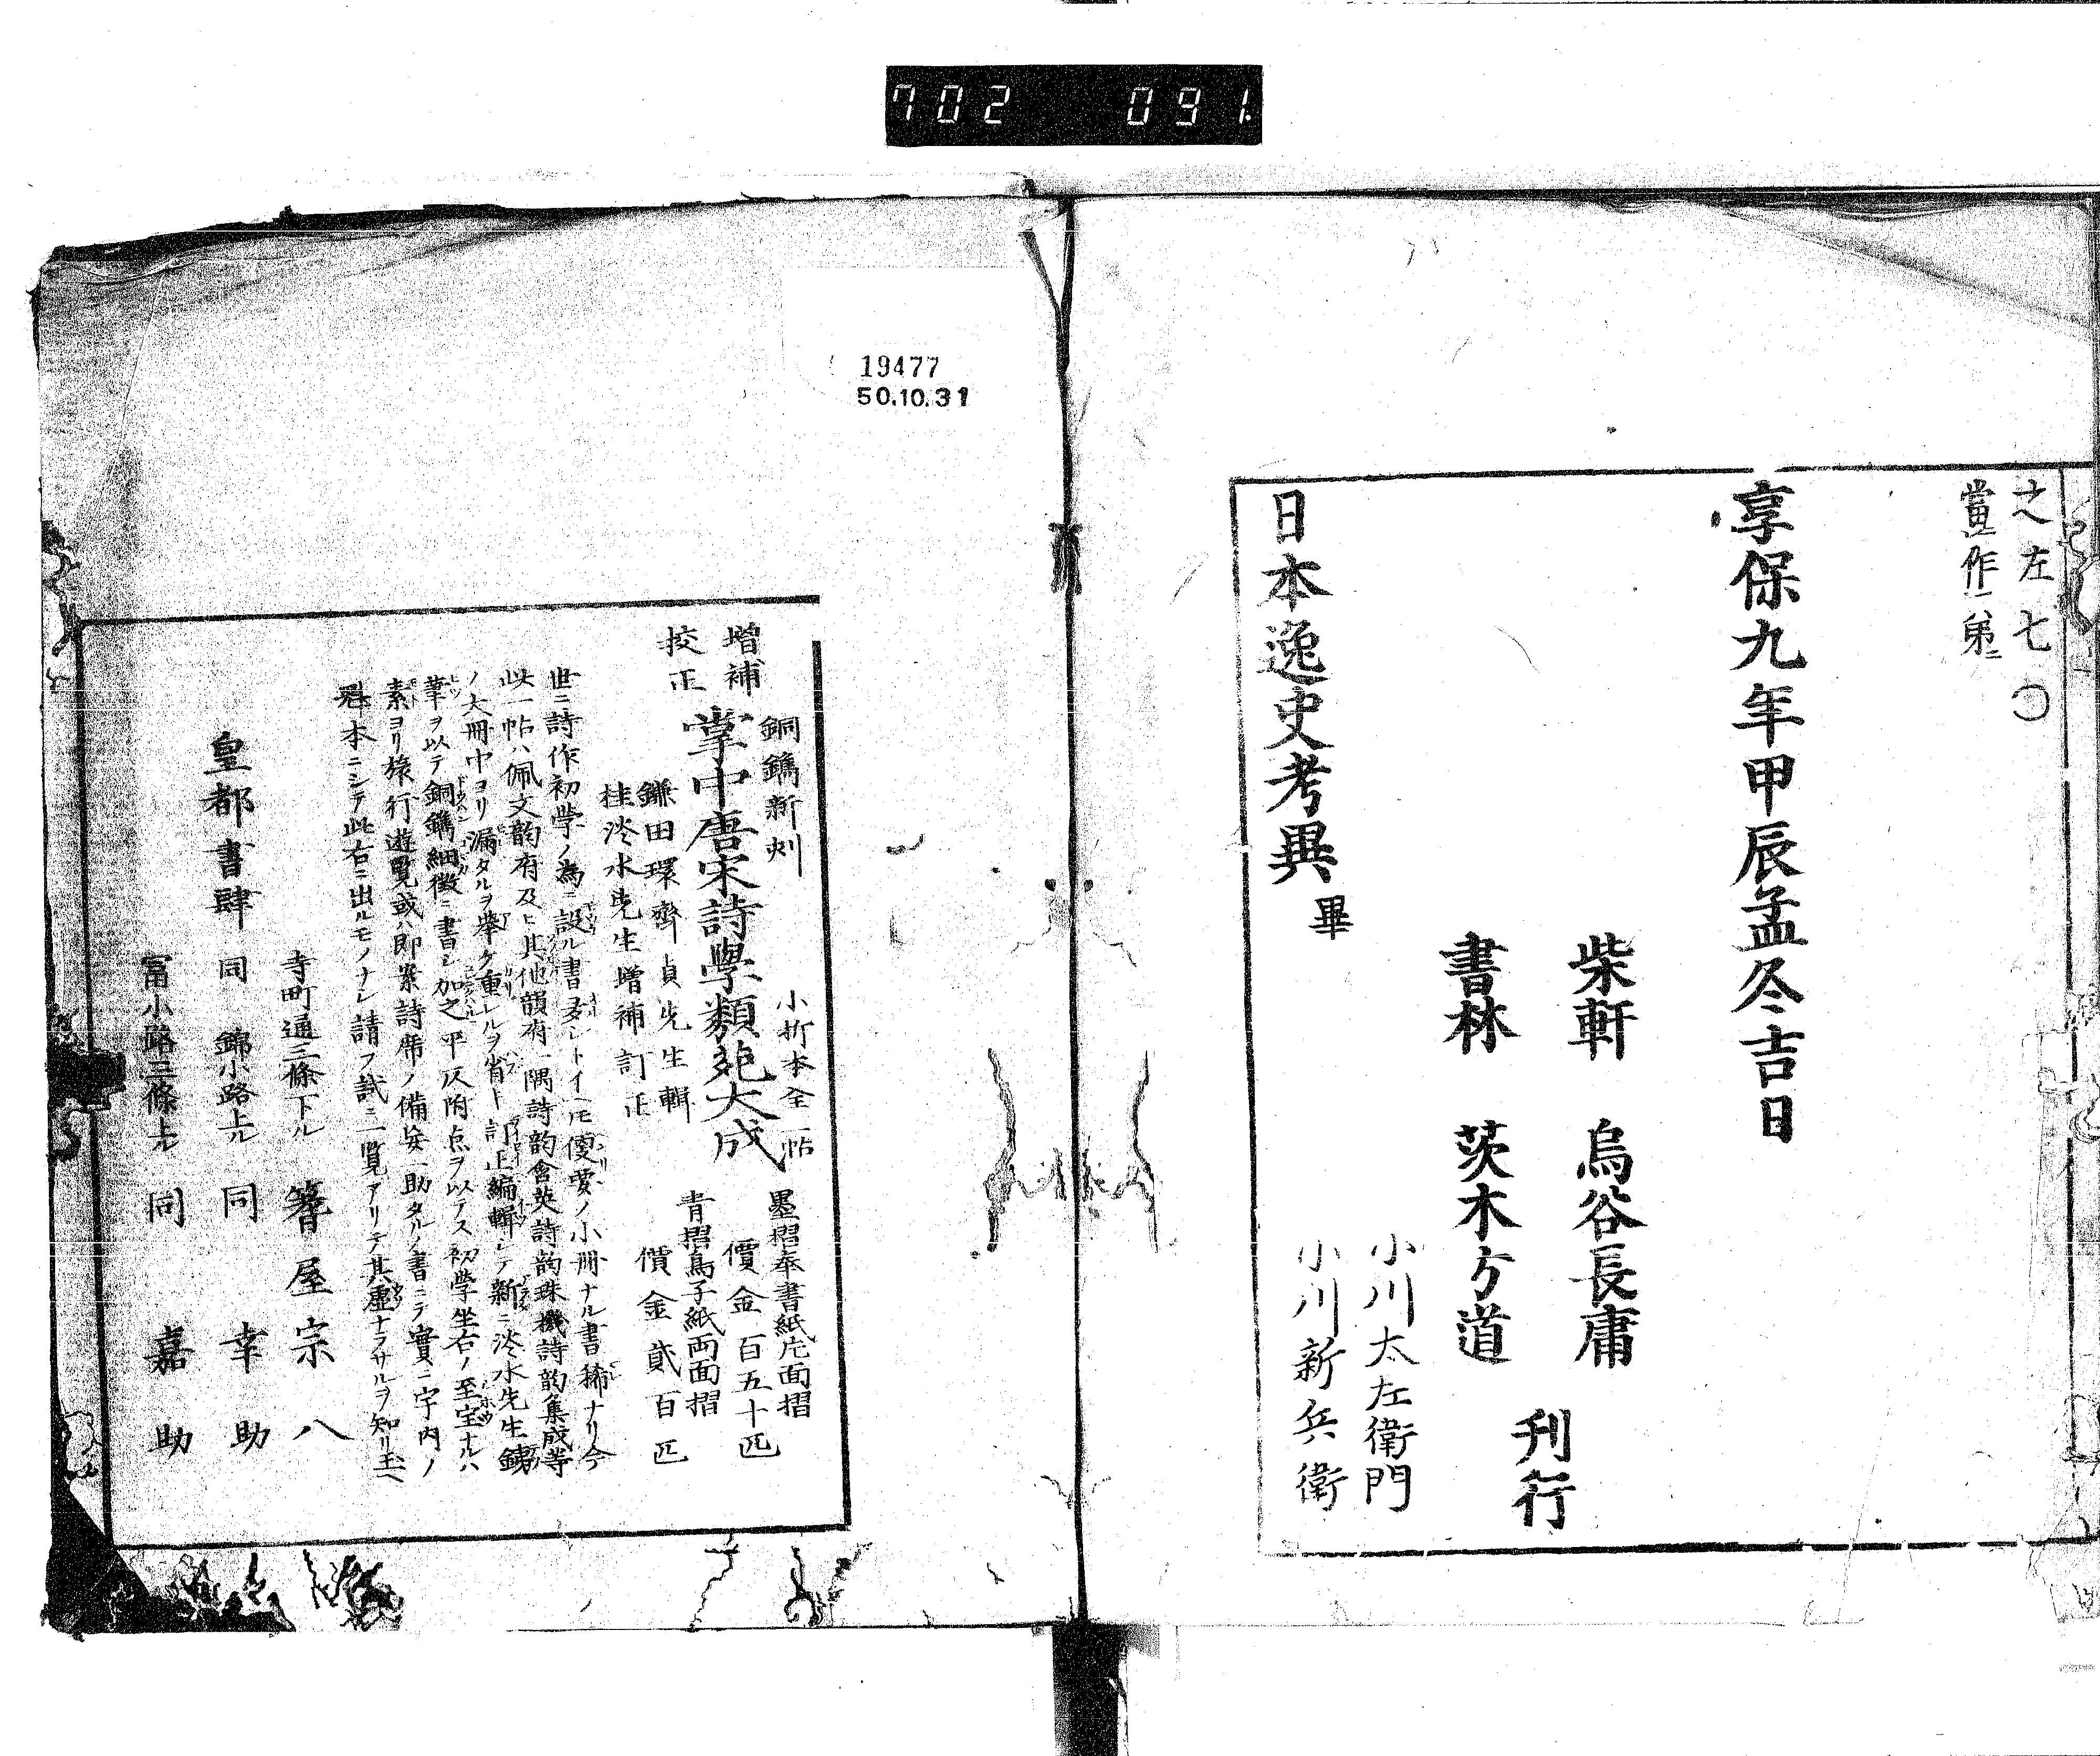 702 091.
之左七〇
當作弟
享保九年甲辰孟冬吉日
柴軒 烏谷長庸
書林 茨木方道
刊行
小川太左衛門
小川新兵衛
日本逸史考異 畢
19477
50.10.31
銅鐫新刻 小折本全一帖
増補 校正 掌中唐宋詩學類苑大成
墨摺奉書紙片面摺
價金百五十匹
青摺鳥子紙両面摺
價金貳百匹
鎌田環齋貞先生輯
桂淡水先生増補訂正
世ニ詩作初學ノ為ニ設ル書多シトイヘ𪜈優要ノ小冊ナル書稀ナリ今
此一帖ハ佩文韵府及ヒ其他韻府一隅詩韵含英詩韵珠機詩韵集成等
ノ大冊中ヨリ漏タルヲ舉ケ重レルヲ省ト訂正編輯シテ新ニ淡水先生鋳
筆ヲ以テ銅鐫細微ニ書シ加之平仄附点ヲ以テス初學坐右ノ至宝ナルハ
素ヨリ旅行遊覧或ハ即案詩席ノ備安一助タルノ書ニテ實ニ宇内ノ
魁本ニシテ此右ニ出ルモノナシ請フ試ニ一覧アリテ其虚ナラサルヲ知リ玉ヘ
皇都書肆
寺町通三條下ル 簪屋宗八
同 錦小路上ル 同 幸助
冨小路三條上ル 同 嘉助